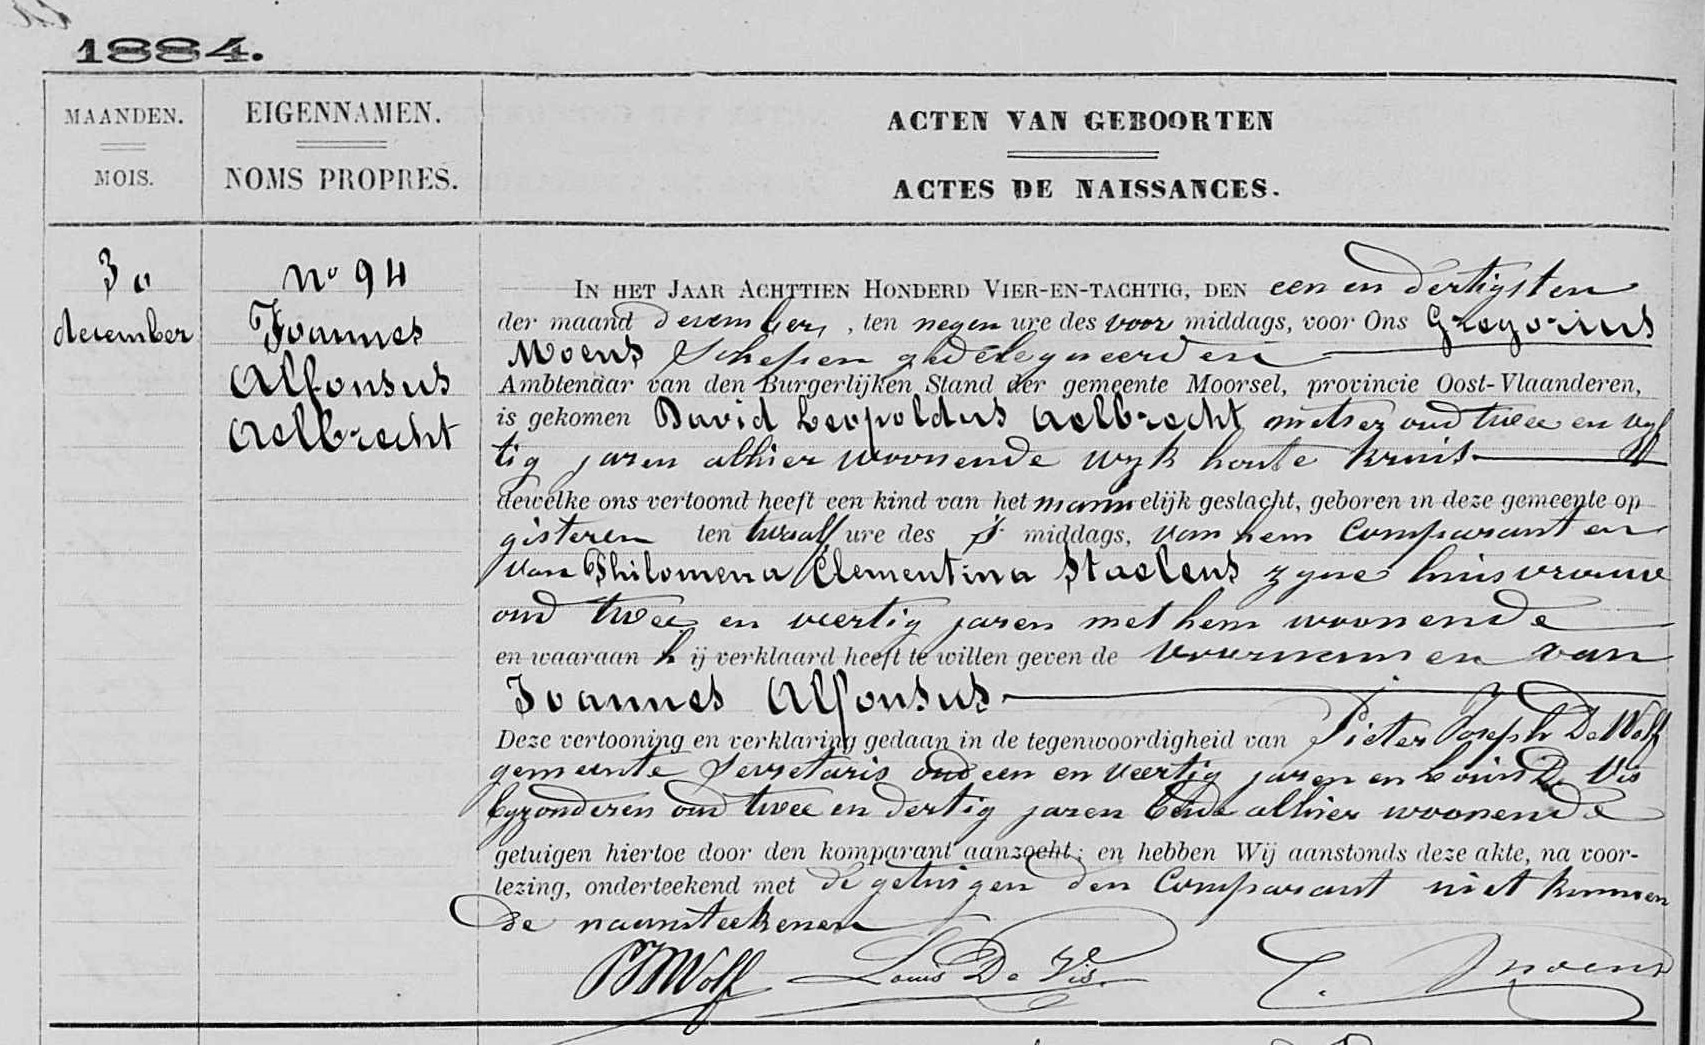 1884.
MAANDEN.
MOIS.
EIGENNAMEN.
NOMS PROPRES.
ACTEN VAN GEBOORTEN
ACTES DE NAISSANCES.
30
december
No 94
Joannes
Alfonsus
Aelbrecht
IN HET JAAR ACHTTIEN HONDERD VIER-EN-TACHTIG, DEN een en dertigsten
der maand december, ten negen ure des voor middags, voor Ons Gregorius
Moens Schepen gedelegueerden
Ambtenaar van den Burgerlijken Stand der gemeente Moorsel, provincie Oost-Vlaanderen,
is gekomen David Leopoldus Aelbrecht metser oud twee en vyf
tig jaren alhier woonende wyk houte kruis
dewelke ons vertoond heeft een kind van het mannelijk geslacht, geboren in deze gemeente op
gisteren ten twaalf ure des s' middags, van hem Comparant en
van Philomena Clementina Staelens zyne huisvrouw
oud twee en veertig jaren met hem woonende
en waaraan hij verklaard heeft te willen geven de voornamen van
Joannes Alfonsus
Deze vertooning en verklaring gedaan in de tegenwoordigheid van Pieter Joseph De Wolf
gemeente Secretaris oud een en veertig jaren en Louis De Vis
byzonderen oud twee en dertig jaren beide alhier woonende
getuigen hiertoe door den komparant aanzocht; en hebben Wij aanstonds deze akte, na voor-
lezing, onderteekend met de getuigen den Comparant niet kunnen
de naamsteekenen
PJ De Wolf Louis De Vis. G. Moens